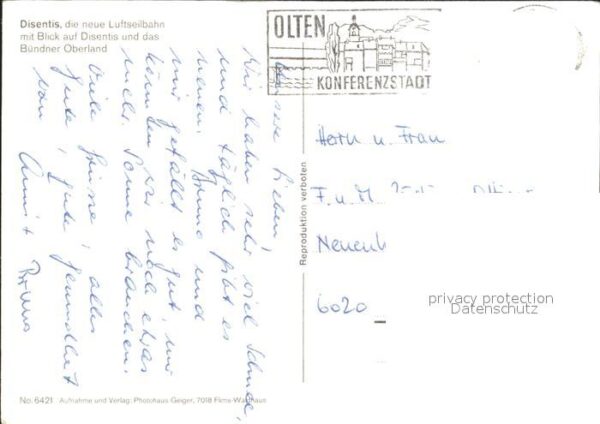 Disentis, die neue Luftseilbahn
mit Blick auf Disentis und das
Bündner Oberland
OLTEN
KONFERENZSTADT
Lieben!
Wir haben sehr viel Schnee,
und täglich gibt es
neuen. Bruno und
mir gefällt es gut, nur
könnten wir noch etwas
mehr Sonne brauchen.
Viele Grüsse, alles
Gute, gute Gesundheit
von Anni + Bruno
Reproduktion verboten
Herrn u. Frau
F. u. M.
6020
privacy protection
Datenschutz
No. 6421 Aufnahme und Verlag: Photohaus Geiger, 7018 Flims-Waldhaus